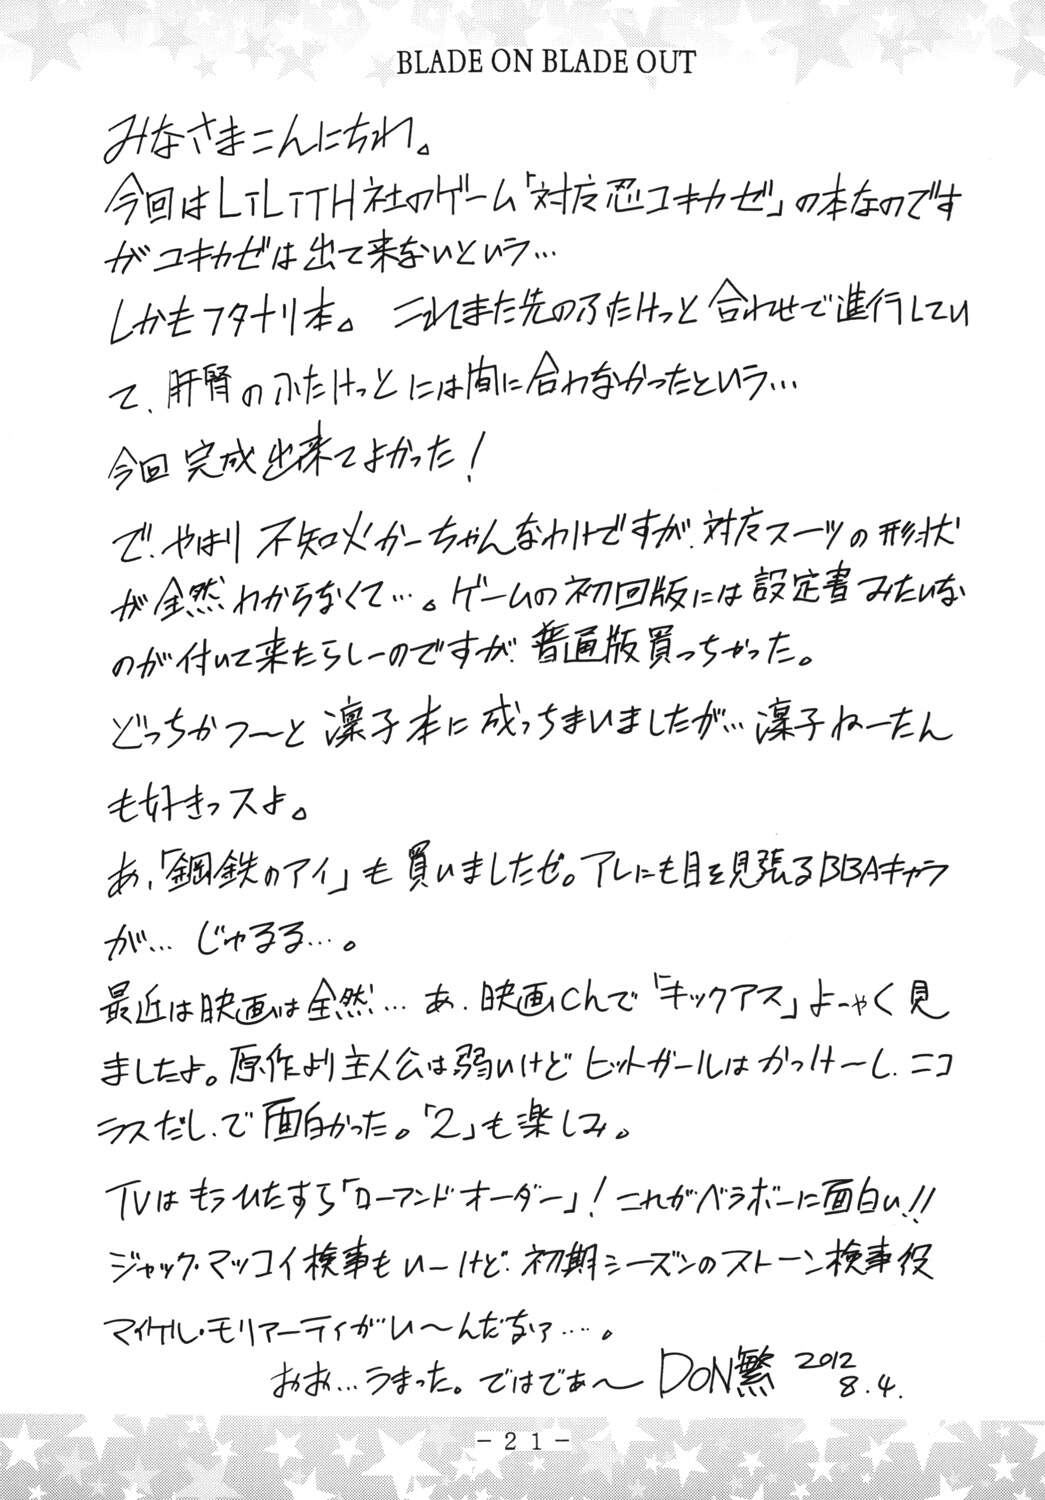 BLADE ON BLADE OUT
みなさまこんにちわ。
今回はLiLiTH社のゲーム「対魔忍ユキカゼ」の本なのです
がユキカゼは出て来ないという…
しかもフタナリ本。 これまた先のふたけっと合わせで進行してい
て、肝腎のふたけっとには間に合わなかったという…
今回完成出来てよかった!
で、やはり不知火かーちゃんなわけですが、対魔スーツの形状
が全然わからなくて…。ゲームの初回版には設定書みたいな
のが付いて来たらしーのですが、普通版買っちゃった。
どっちかつ〜と凛子本に成っちまいましたが…凛子ねーたん
も好きっスよ。
あ、「鋼鉄のアイ」も買いましたぜ。アレにも目を見張るBBAキャラ
が… じゅるる…。
最近は映画は全然…あ、映画Chで「キックアス」よーやく見
ましたよ。原作より主人公は弱いけどヒットガールはかっけーし、ニコ
ラスだし、で面白かった。「2」も楽しみ。
TVはもうひたすら「ローアンドオーダー」!これがベラボーに面白い!!
ジャック・マッコイ検事もいーけど、初期シーズンのストーン検事役
マイケル・モリアーティがい〜んだなァ…。
おお…うまった。ではでぁ〜 DON繁 2012
8.4.
- 21 -